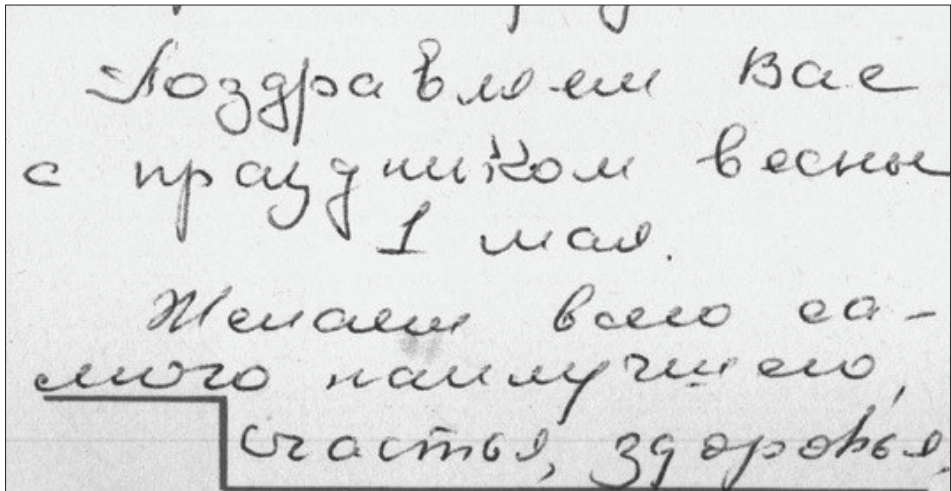 Поздравляем Вас
с праздником весны
1 мая.
Желаем всего са-
мого наилучшего,
счастья, здоровья,